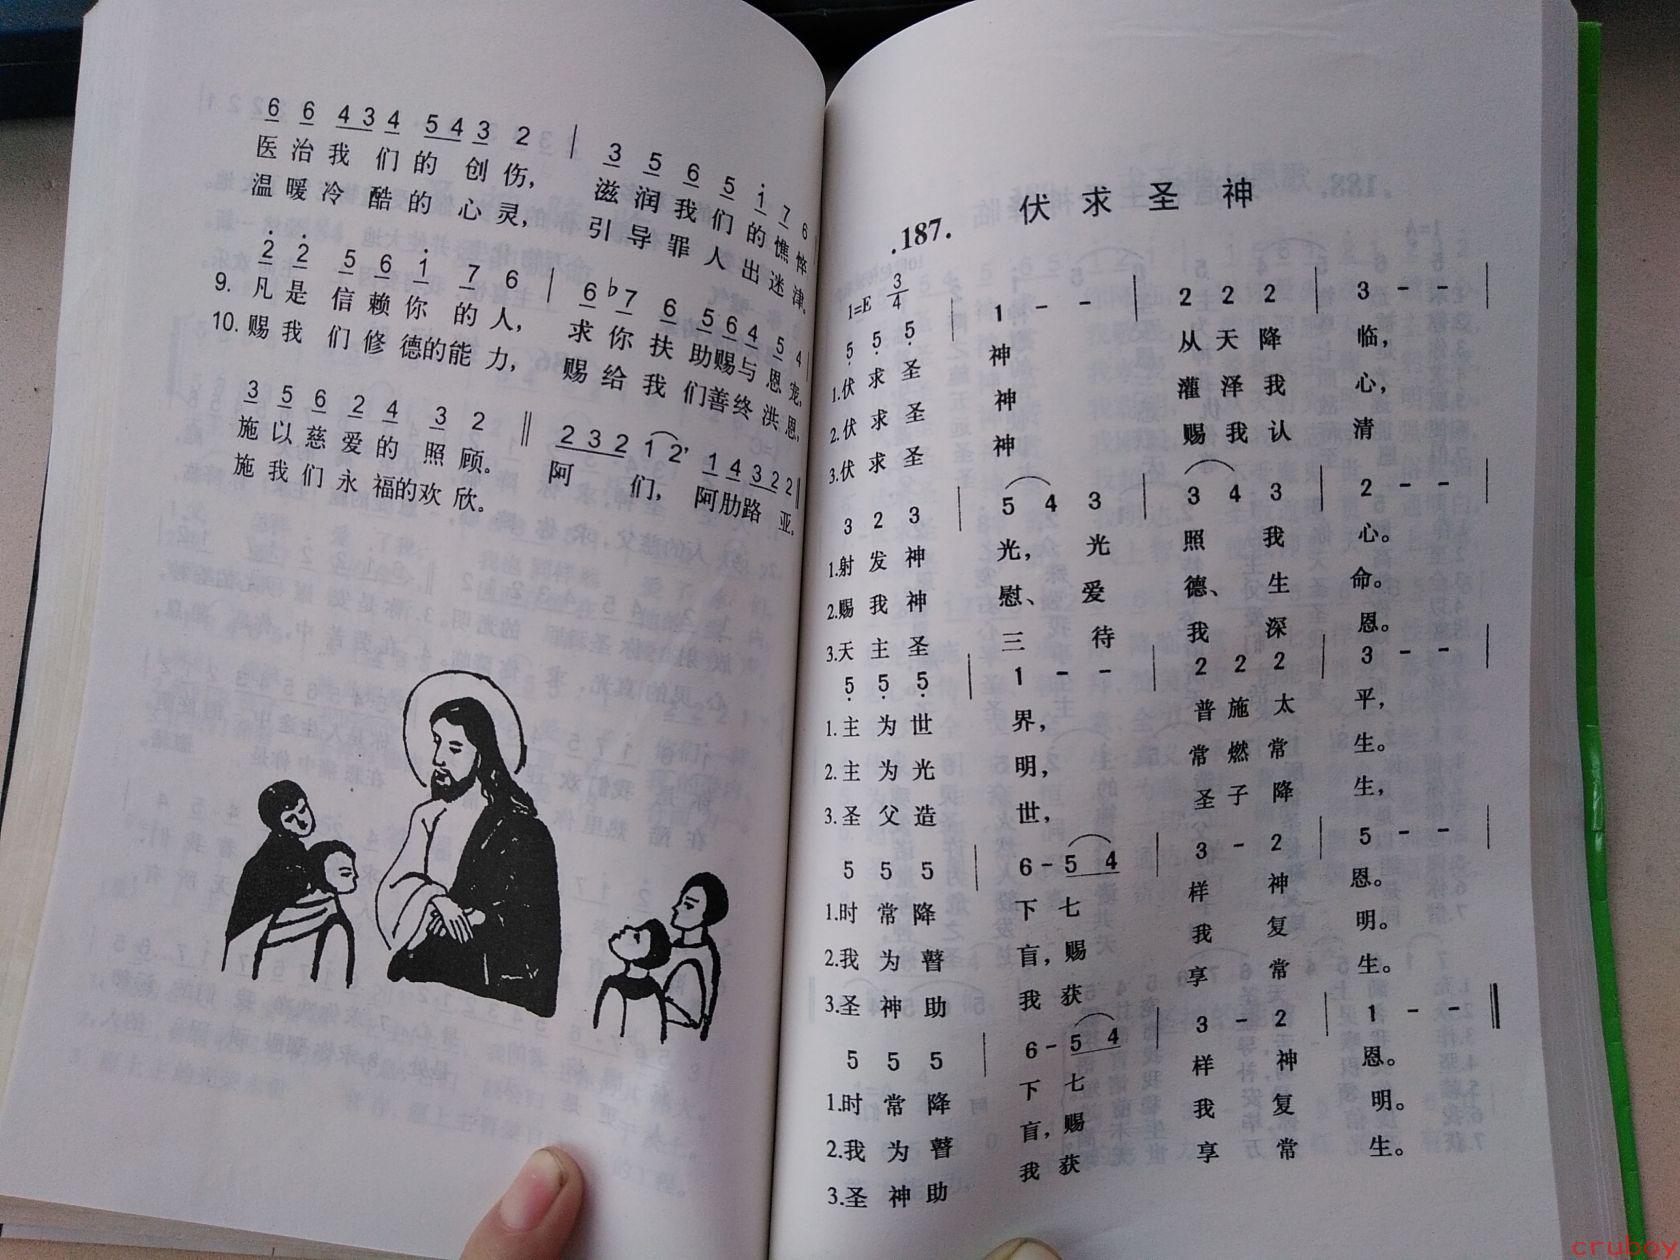 6 6 4 3 4 5 4 3 2 | 3 5 6 5 1 7 6
医治我们的创伤， 滋润我们的憔悴
温暖冷酷的心灵， 引导罪人出迷津。
2 2 5 6 1 7 6 | 6 ♭7 6 5 6 4 5 4 |
9. 凡是信赖你的人， 求你扶助赐与恩宠，
10. 赐我们修德的能力， 赐给我们善终洪恩，
3 5 6 2 4 3 2 ‖ 2 3 2 1 2， 1 4 3 2 2 ‖
施以慈爱的照顾。 阿们， 阿肋路亚。
施我们永福的欢欣。
.187. 伏求圣神
1=E 3/4
5 5 5 | 1 - - | 2 2 2 | 3 - - |
1.伏求圣神 从天降临，
2.伏求圣神 灌泽我心，
3.伏求圣神 赐我认清
3 2 3 | 5 4 3 | 3 4 3 | 2 - - |
1.射发神光，光照我心。
2.赐我神慰、爱德、生命。
3.天主圣三待我深恩。
5 5 5 | 1 - - | 2 2 2 | 3 - - |
1.主为世界， 普施太平，
2.主为光明， 常燃常生。
3.圣父造世， 圣子降生，
5 5 5 | 6 - 5 4 | 3 - 2 | 5 - - |
1.时常降下七样神恩。
2.我为瞽盲，赐我复明。
3.圣神助我获享常生。
5 5 5 | 6 - 5 4 | 3 - 2 | 1 - - ‖
1.时常降下七样神恩。
2.我为瞽盲，赐我复明。
3.圣神助我获享常生。
cruboy